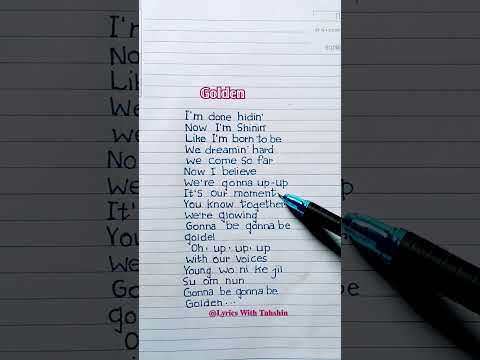 Golden
I'm done hidin'
Now I'm Shinin'
Like I'm born to be
We dreamin' hard
we come so far
Now I believe
We're gonna up-up
It's our moment
You know together
We're glowing
Gonna be gonna be
goldel
Oh, up, up, up
with our voices
Young wo ni ke jil
Su om nun
Gonna be gonna be
Golden...
@Lyrics With Tahshin